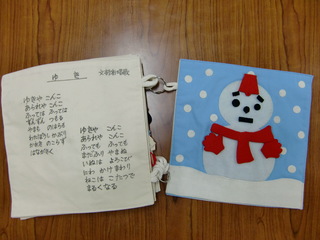 ゆき 文部省唱歌
ゆきや こんこ
あられや こんこ
ふっては ふっては
ずんずん つもる
やまも のはらも
わたぼうし かぶり
かれき のこらず
はながさく
ゆきや こんこ
あられや こんこ
ふっても ふっても
まだふり やまぬ
いぬは よろこび
にわ かけまわり
ねこは こたつで
まるくなる